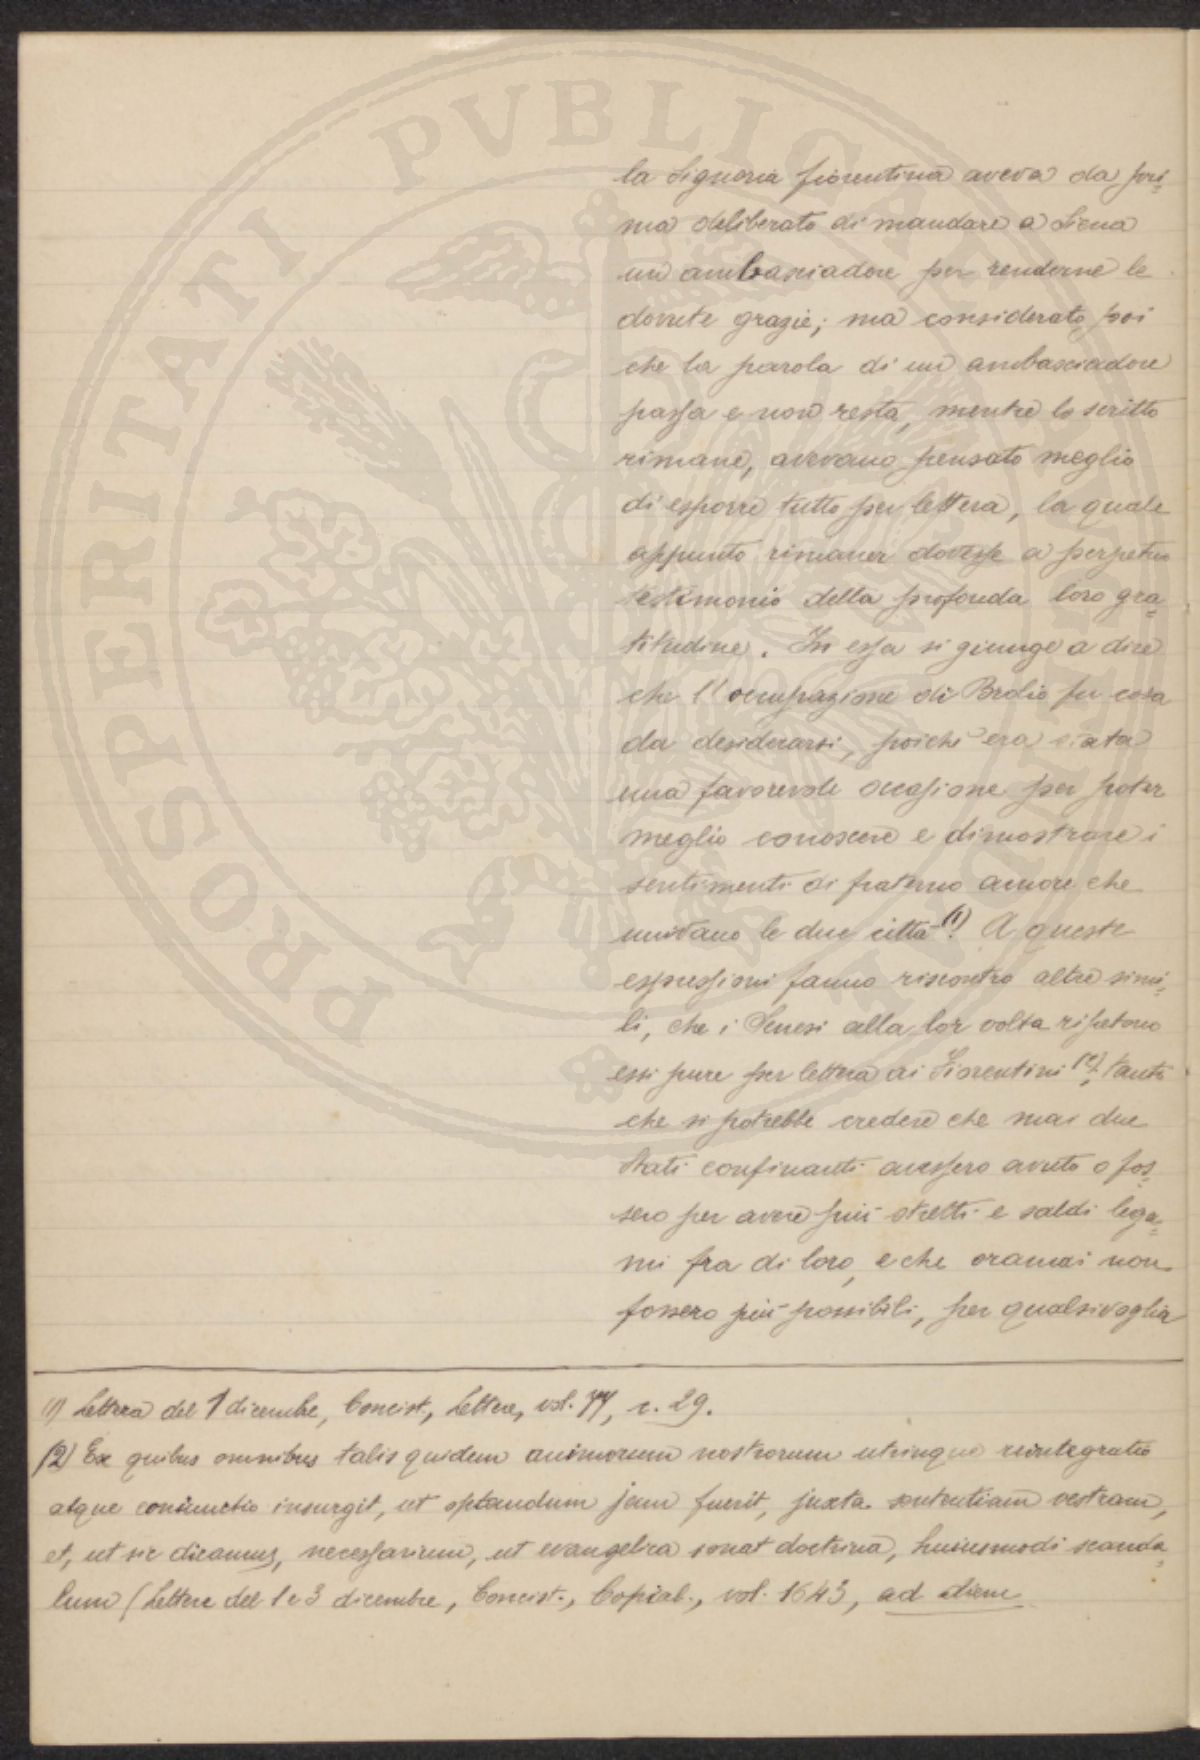 PROSPERITATI PVBLICAE
la Signoria fiorentina aveva da pri-
ma deliberato di mandare a Siena
un ambasciadore per renderne le
dovute grazie; ma considerato poi
che la parola di un ambasciadore
passa e non resta, mentre lo scritto
rimane, avevano pensato meglio
di esporre tutto per lettera, la quale
appunto rimaner dovesse a perpetuo
testimonio della profonda loro gra-
titudine. In essa si giunge a dire
che l'occupazione di Brolio fu cosa
da desiderarsi, poichè era stata
una favorevole occasione per poter
meglio conoscere e dimostrare i
sentimenti di fraterno amore che
univano le due città (1). A queste
espressioni fanno riscontro altre simi-
li, che i Senesi alla lor volta ripetono
essi pure per lettera ai Fiorentini (2), tanto
che si potrebbe credere che mai due
Stati confinanti avessero avuto o fos-
sero per avere più stretti e saldi lega-
mi fra di loro, e che oramai non
fossero più possibili, per qualsivoglia
(1) Lettera del 1 dicembre, Concist., Lettere, vol. 77, c. 29.
(2) Ex quibus omnibus talis quidem animorum nostrorum utrinque reintegratio
atque coniunctio insurgit, ut optandum jam fuerit, juxta sententiam vestram,
et, ut sic dicamus, necessarium, ut evangelica sonat doctrina, huiusmodi scanda-
lum (Lettere del 1 e 3 dicembre, Concist., Copial., vol. 1643, ad diem